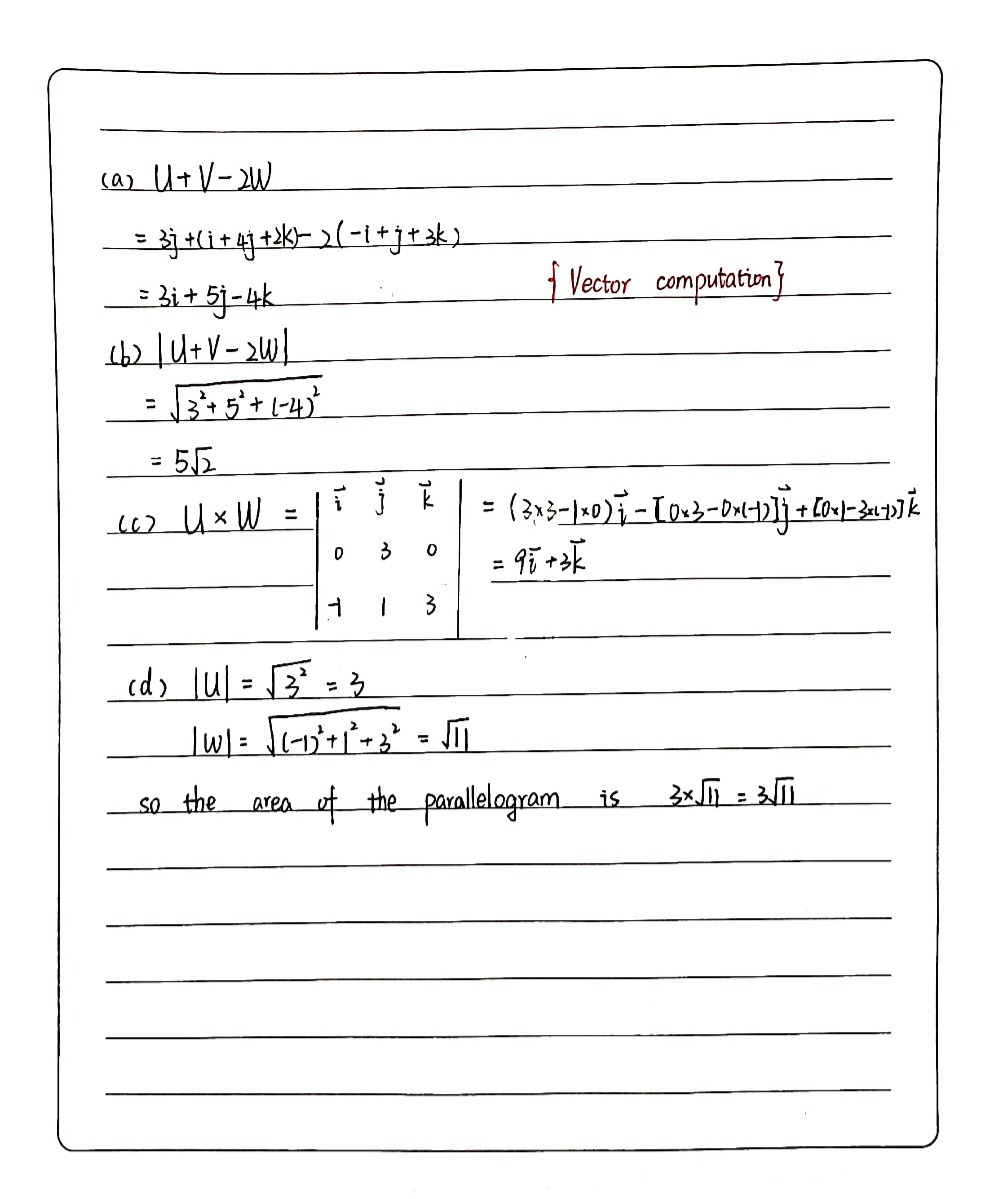 (a) U+V-2W
= 3j+(i+4j+2k)-2(-i+j+3k)
= 3i+5j-4k
{Vector computation}
(b) |U+V-2W|
= √(3²+5²+(-4)²)
= 5√2
(c) U×W = | i⃗ j⃗ k⃗ | = (3×3-1×0)i⃗-[0×3-0×(-1)]j⃗+[0×1-3×(-1)]k⃗
0 3 0 = 9i⃗+3k⃗
-1 1 3
(d) |U| = √3² = 3
|W| = √((-1)²+1²+3²) = √11
so the area of the parallelogram is 3×√11 = 3√11